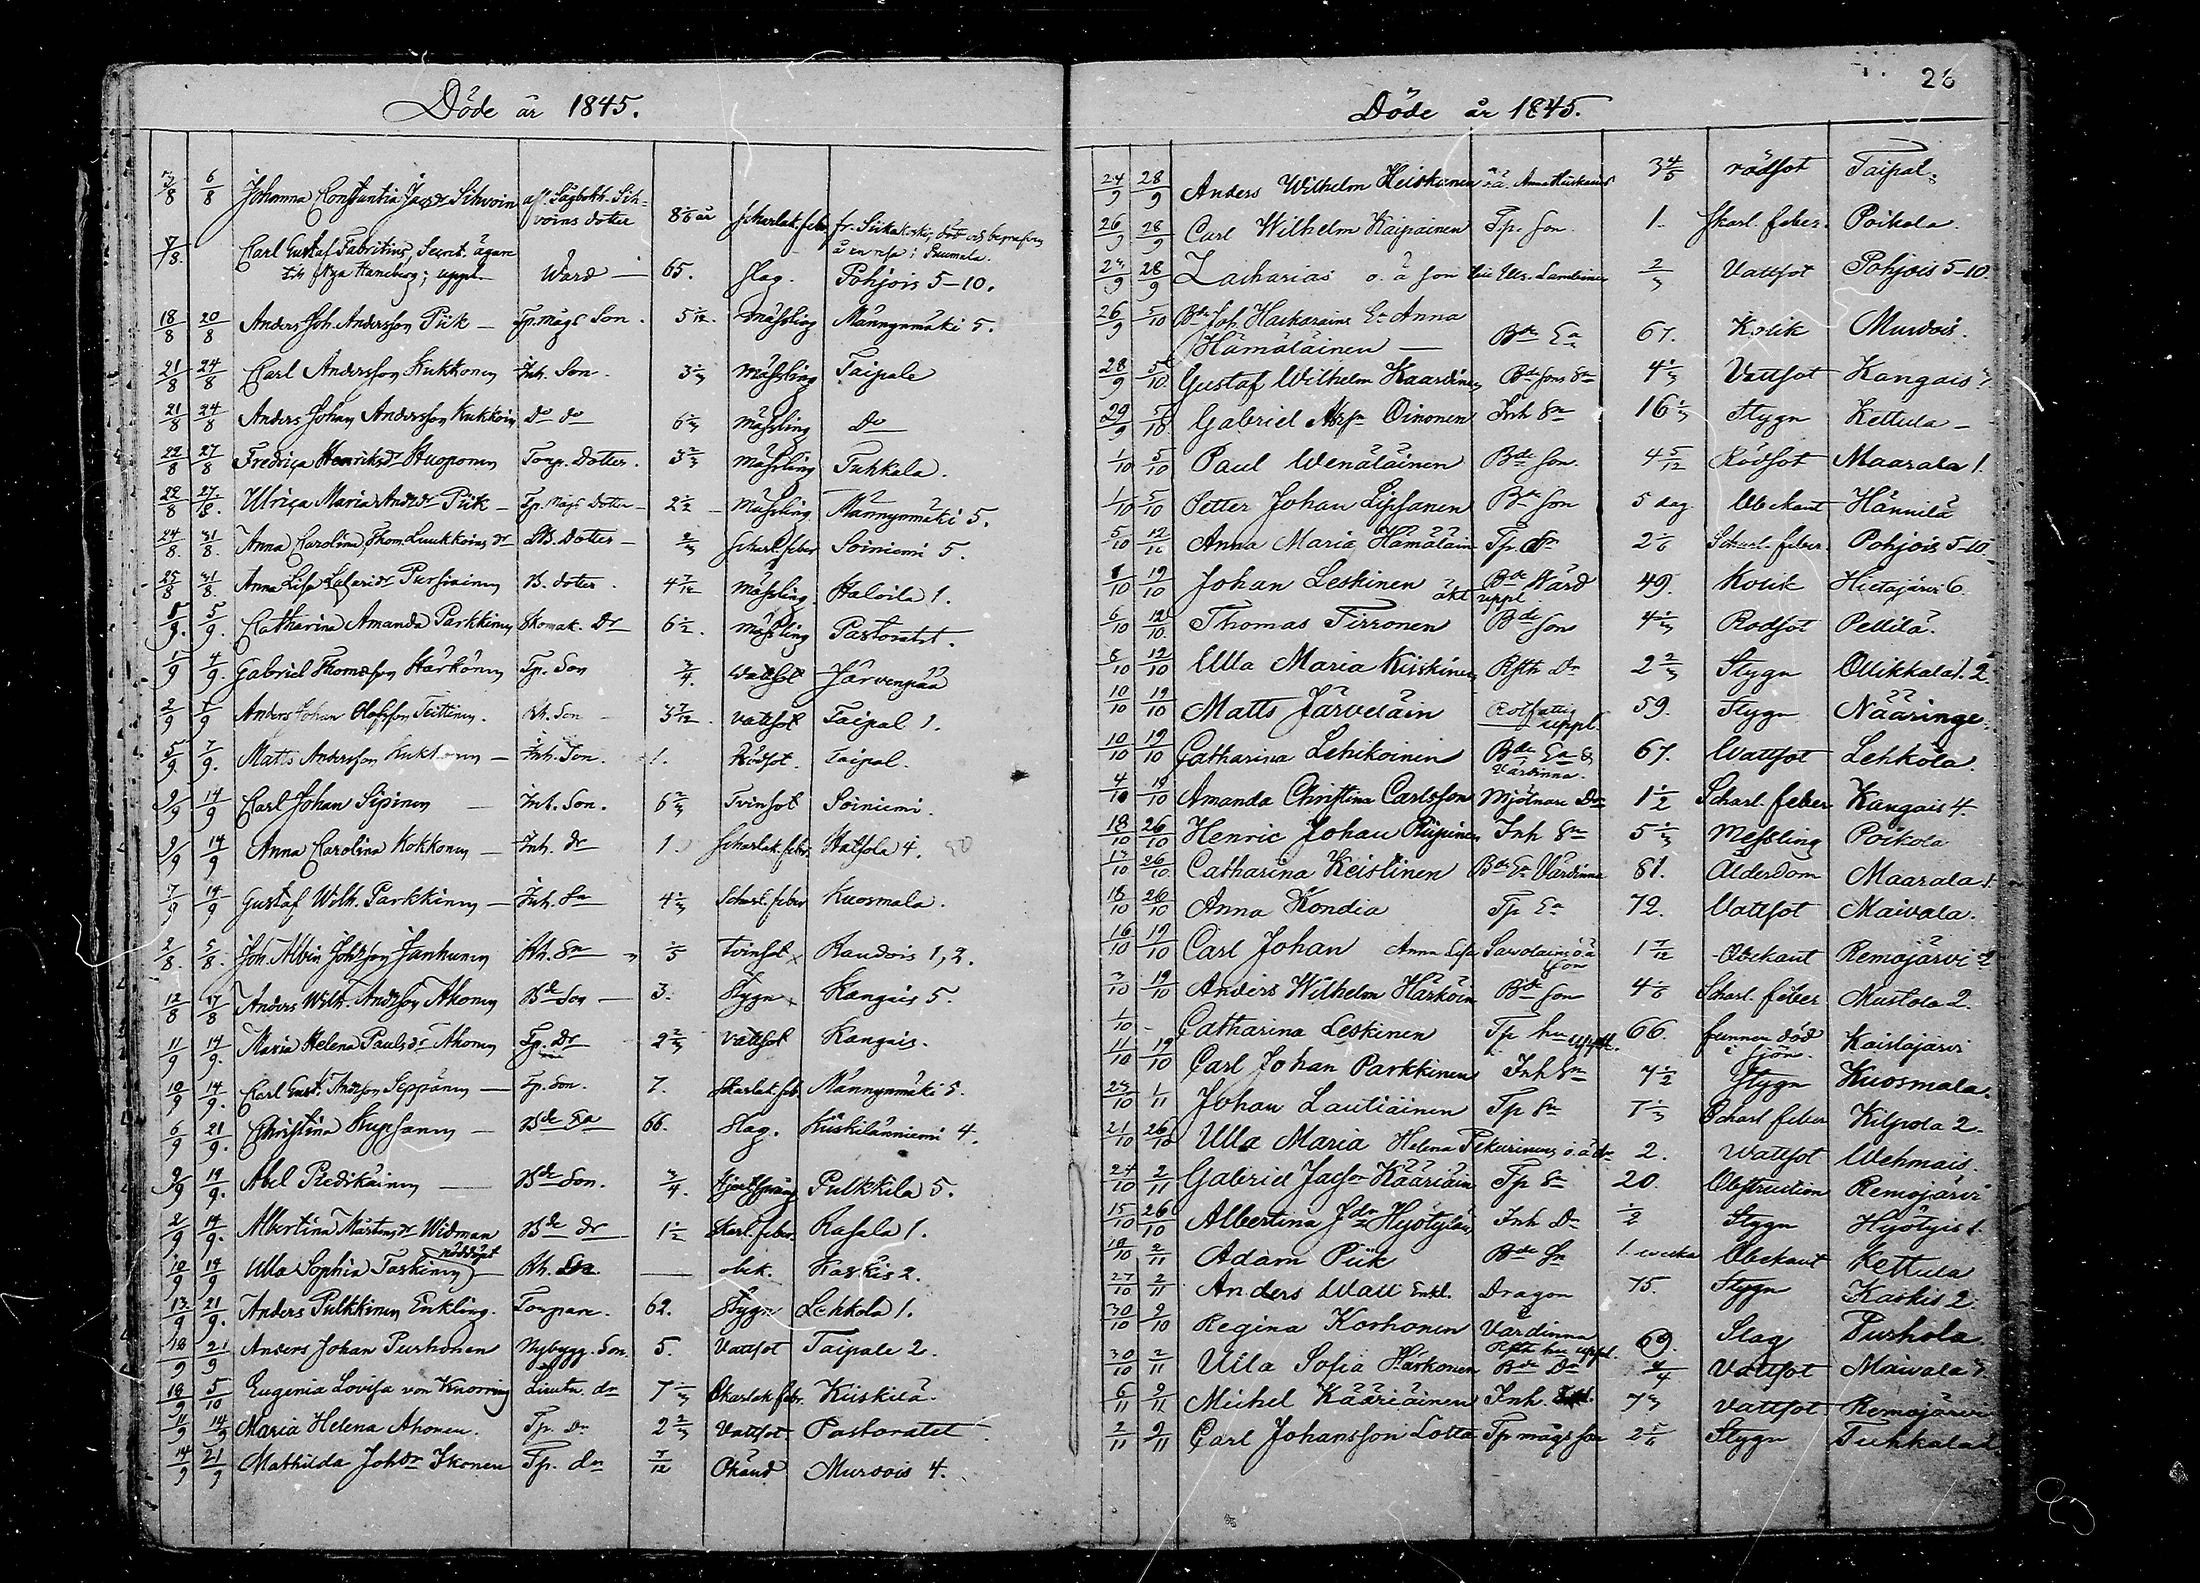 Döde år 1845.
3/8 6/8 Johanna Constantia Jacdr Sihvoin afl. Sågbokh. Sih-
voins dotter 8 1/6 år Scharlak. feber fr. Siikakoski, död och begrafven
å en resa i Puumala.
7/8. Carl Gustaf Fabritius, Secret. ägare
till Nya Haneberg; uppl. Wärd — 65. slag. Pohjois 5-10.
18/8 20/8 Anders Joh. Andersson Piik — Tp. mågs Son. 5 1/12. mässling Männynmäki 5.
21/8 24/8 Carl Andersson Kukkonen Inh. Son. 3 1/3 mässling Taipale
21/8 24/8 Anders Johan Andersson Kukkoin Do do 6 1/3 mässling Do
22/8 27/8 Fredrica Henriksdr Huoponen Torp. Dotter. 3 2/3 mässling Tuhkala.
22/8 27/8. Ulrica Maria Andrdr Piik — Tp. mågs Dotter — 2 1/2 mässling Männynmäki 5.
24/8. 31/8. Anna Carolina Thom. Luukkoins dr Dotter — 2/3 Scharl. feber Soiniemi 5.
25/8 31/8. Anna Lisa Lasaridr Pursiainen B. doter. 4 7/12 mässling. Haloila 1.
5/9. 5/9. Catharina Amanda Parkkinen Skomak. Dr 6 1/2. mässling Pastoratet.
1/9 4/9. Gabriel Thomasson Härkönen Tp. Son 3/4. Wattsot Järvenpää
2/9 7/9 Anders Johan Olofsson Teittinen. Son 3 7/12. vattsot Taipal 1.
5/9. 7/9. Matts Andersson Kukkonen — Inh. Son. 1. Rödsot. Taipal.
9/9 14/9 Carl Johan Sipinen — Inh. Son. 6 2/3 Tvinsot Soiniemi.
9/9 14/9 Anna Carolina Kokkonen — Inh. dr 1. Scharlak. feber. Hatsola 4.
7/9 14/9 Gustaf Wilh. Parkkinen — Inh. Sn 4 1/3 Scharl. feber Kuosmala.
2/8. 5/8. Joh. Albin Johsson Janhunen Sn 1/5 Tvinsot Raudois 1, 2.
12/8 17/8 Anders Wilh. Andrsson Ahonen Bde Son — 3. Stygn Kangais 5.
11/9 14/9. Maria Helena Paulsdr Ahonen Tp. Dr 2 2/3 Vattsot Kangais.
10/9 14/9. Carl Gust. Andrsson Seppänen — Tp. Son. 7. Skarlak. feb. Männynmäki 5.
6/9 21/9. Christina Hupsanen — Bde Ea 66. Slag. Kiiskilänniemi 4.
9/9 14/9. Abel Piedikäinen — Bde Son. 3/4. Pulkkila 5.
2/9 14/9. Albertina Mårtensdr Widman Bde dr 1 1/2 Skarl. feber. Rasala 1.
10/9 14/9 Ulla Sophia Taskinen nöddöpt — Kaskis 2.
13/9 21/9. Anders Pulkkinen Enkling. Torpare. 62. Stygn Lehkola 1.
18/9 21/9 Anders Johan Purhonen Nybygg. Son. 5. Vattsot Taipale 2.
19/9 5/10 Eugenia Lovisa von Knorring Lieutn. dr 7 1/3 Skarlak. feber. Kiiskilä.
11/9 14/9 Maria Helena Ahonen. Tp. Dr 2 2/3 Vattsot Pastoratet.
14/9 21/9 Mathilda Johdr Ikonen Tp. dr 7/12 Okänd Murdois 4.
26
Döde år 1845.
24/9 28/9 Anders Wilhelm Heiskanen Anna Heiskanens 3 4/5 rödsot Taipal.
26/9 28/9 Carl Wilhelm Kaipiainen Tp. Son. 1. Skarl. feber. Poikola.
28/9 Zacharias o. ä. son Ulr. Lambinen 2/3 Vattsot Pohjois 5-10
26/9 5/10 Bde Joh. Haikarains Ea Anna
Hämäläinen — Bde Ea 67. Kolik Murdois.
28/9 5/10 Gustaf Wilhelm Kaardinen Bde sons Sn 4 1/3 Vattsot Kangais
29/9 5/10 Gabriel Oinonen Inh Sn 16 1/3 Stygn Kettula —
1/10 5/10 Paul Wenäläinen Bde Son. 4 5/12 Rödsot Maarala 1.
1/10 5/10 Petter Johan Lipsanen Bde Son 5 dag. Obekant Hännilä
5/10 12/10 Anna Maria Hämäläin Tp. Dr 2 1/6 Scharl. feber. Pohjois 5-10
19/10 Johan Leskinen Bde Värd uppl 49. Kolik Hietajärvi 6.
6/10 12/10. Thomas Tirronen Bde Son 4 1/3 Rödsot Pellilä.
8/10 12/10 Ulla Maria Kiiskinen Dr 2 2/3 Stygn Olikkala 1. 2.
10/10 19/10 Matts Järveläin Rotfattig uppl. 59. Stygn Nääringe.
10/10 19/10 Catharina Lehikoinen Bde Ea &
Värdinna. 67. Wattsot Lehkola.
4/10 19/10 Amanda Christina Carlsson Mjölnare Dr 1 1/2 Scharl. feber Kangais 4.
18/10 26/10 Henric Johan Inh Sn 5 1/3 Messling Poikola
26/10 Catharina Keistinen Bde Ea Värdinna 81. Ålderdom Maarala 1.
18/10 26/10 Anna Kondia Tp Ea 72. Vattsot Maivala.
16/10 19/10 Carl Johan Anna Lisa Savolains o. ä
son 1 7/12 Obekant Remojärvi
3/10 19/10 Anders Wilhelm Härköin Bde Son 4 1/6 Scharl. feber Mustola 2.
1/10 - Catharina Leskinen Tp hu uppl. 66. funnen död
i sjön. Kaislajärvi
11/10 19/10 Carl Johan Parkkinen Inh Sn 4 1/2 Stygn Kuosmala.
1/11 Johan Lautiainen Tp Sn 7 1/3 Scharl feber Kilpola 2.
21/10 26/10 Ulla Maria Helena Pekurinens o. ä dr 2. Wattsot Wehmais.
24/10 2/11 Gabriel Jacsn Kääriäin Tp Sn 20. Obstruction Remojärvi
15/10 26/10 Albertina Hyötyläin Inh Dr 1/2 Stygn Hyötyis 1.
19/10 2/11 Adam Piik Bde Sn 1 vecka Obekant Kettula
27/10 2/11 Anders Wall Enkl. Dragon 75. Stygn Kaskis 2.
30/10 9/10 Regina Korhonen Värdinna
hu uppl. 69. Slag Purhola.
30/10 2/11 Ulla Sofia Härkonen Bde Dr Vattsot Maivala
6/11 9/11 Michel Kääriäinen Inh. Vattsot Remojärvi
2/11 9/11 Carl Johansson Lotta Tp mågs son 2 5/6 Stygn Tuhkala